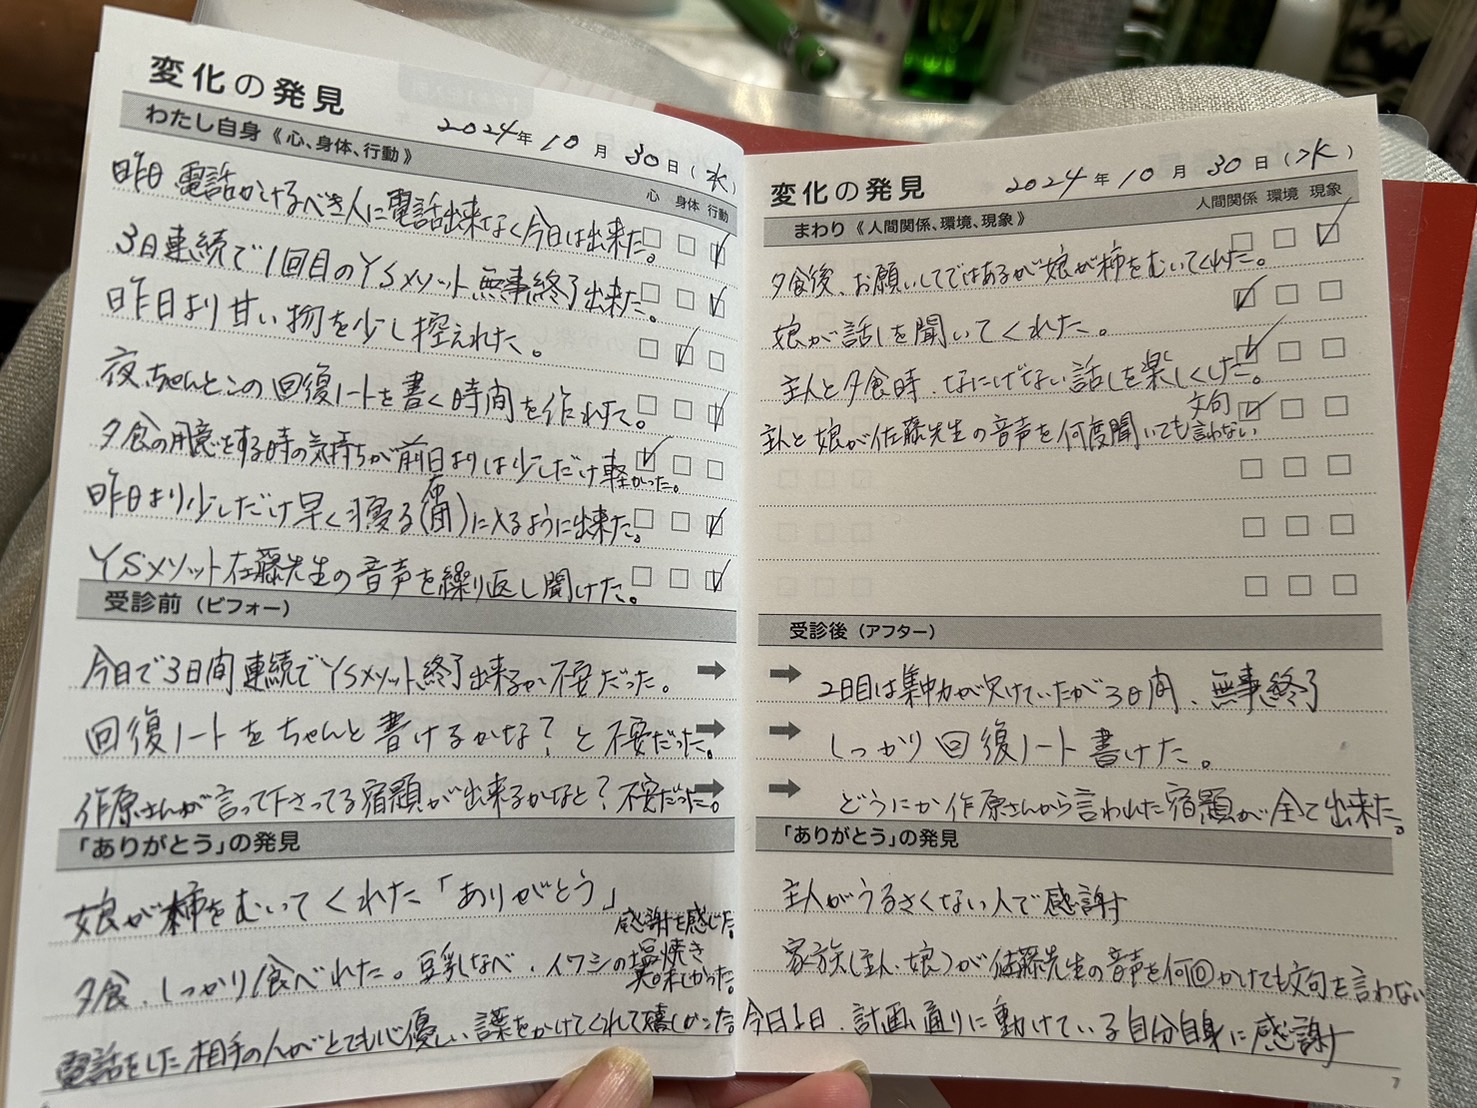 変化の発見
わたし自身《心、身体、行動》
2024年 10月 30日(水)
心 身体 行動
昨日 電話かけるべき人に電話出来なく今日は出来た。
3日連続で1回目のYSメソット無事終了出来た。
昨日より甘い物を少し控えれた。
夜、ちゃんとこの回復ノートを書く時間を作れた。
夕食の用意をする時の気持ちが前日よりは少しだけ軽かった。
昨日より少しだけ早く寝る(布団)に入るように出来た。
YSメソット佐藤先生の音声を繰り返し聞けた。
受診前(ビフォー)
今日で3日間連続でYSメソット終了出来るか不安だった。
回復ノートをちゃんと書けるかな?と不安だった。
作原さんが言って下さってる宿題が出来るかなと?不安だった。
「ありがとう」の発見
娘が柿をむいてくれた「ありがとう」
感謝を感じた。
夕食、しっかり食べれた。豆乳なべ、イワシの塩焼き
美味しかった。
電話をした相手の人がとても心優しい言葉をかけてくれて嬉しかった。
変化の発見
2024年 10月 30日(水)
まわり《人間関係、環境、現象》
人間関係 環境 現象
夕食後、お願いしてではあるが娘が柿をむいてくれた。
娘が話しを聞いてくれた。
主人と夕食時、なにげない話しを楽しくした。
主人と娘が佐藤先生の音声を何度聞いても文句言わない
受診後(アフター)
2日目は集中力が欠けていたが3日間、無事終了
しっかり回復ノート書けた。
どうにか作原さんから言われた宿題が全て出来た。
「ありがとう」の発見
主人がうるさくない人で感謝
家族(主人、娘)が佐藤先生の音声を何回かけても文句を言わない
今日1日、計画通りに動けている自分自身に感謝
7